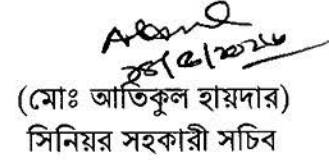 (মোঃ আতিকুল হায়দার)
সিনিয়র সহকারী সচিব